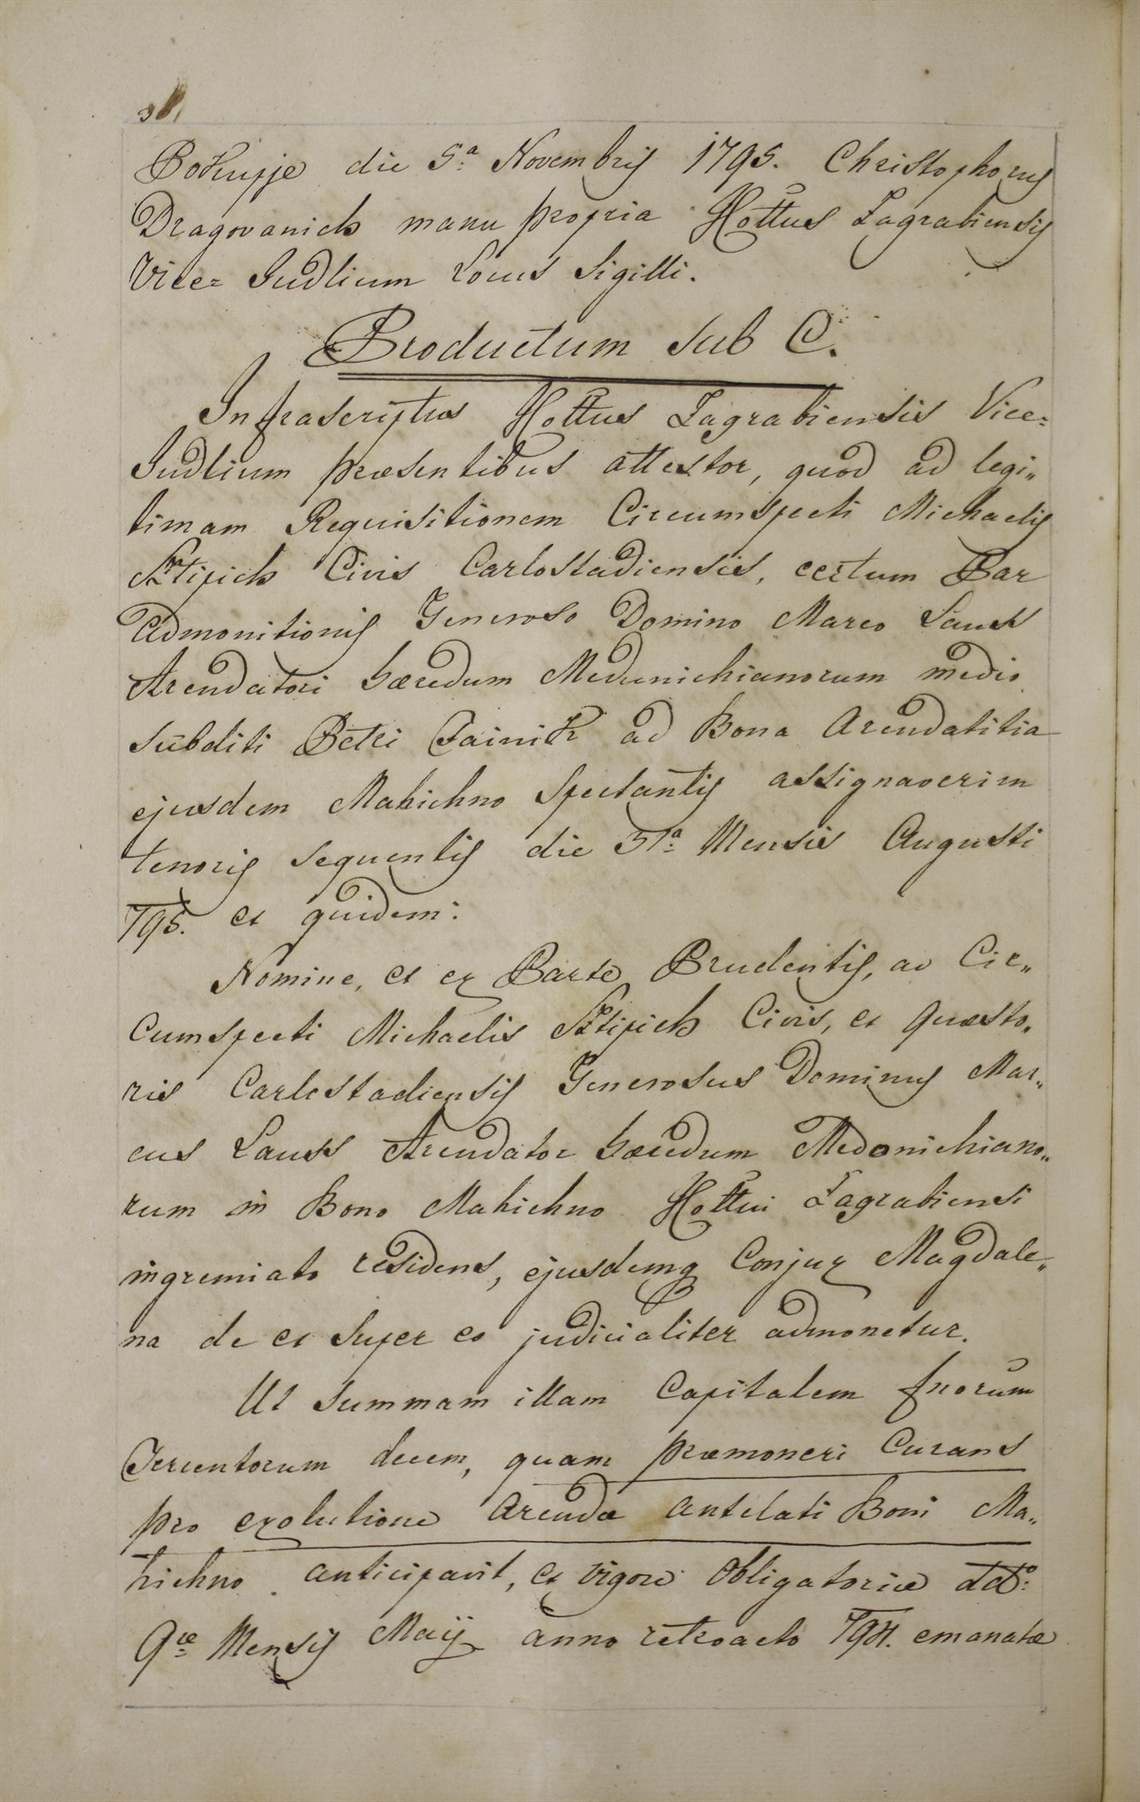 Pokupje die 5ª Novembris 1795. Christophorus
Dragovanich manu propria I. Cottus Zagrabiensis
Vice= Judlium Locus Sigilli.
Productum sub C.
Infrascriptus I. Cottus Zagrabiensis Vice=
Judlium præsentibus attestor, quod ad legi„
timam Requisitionem Circumspecti Michaelis
Civis Carlostadiensis, certum Par
Admonitionis Generoso Domino Marco Lauss
Arendatori hæredum Medunichianorum medio
subditi Petri ad Bona Arendatitia
ejusdem Mahichno Spectantis assignaverim
tenoris sequentis die 31ª Mensis Augusti
795. et quidem:
Nomine, et ex Parte Prudentis, ac Cir„
Cumspecti Michaelis Civis, et Quæsto„
ris Carlostadiensis Generosus Dominus Mar„
cus Lauss Arendator hæredum Medonichiano„
rum in Bono Mahichno I. Cottui Zagrabiensi
ingremiato residens, ejusdemq Conjux Magdale„
na de et super eo judicialiter admonetur.
Ut Summam illam Capitalem fnorum
Tercentorum decem, quam præmoneri Curans
pro exolutione Arendæ antelati Boni Ma„
hichno anticipavit, et vigore Obligatoriæ ddto:
9næ Mensis Maij anno retroacto 794. emanatæ